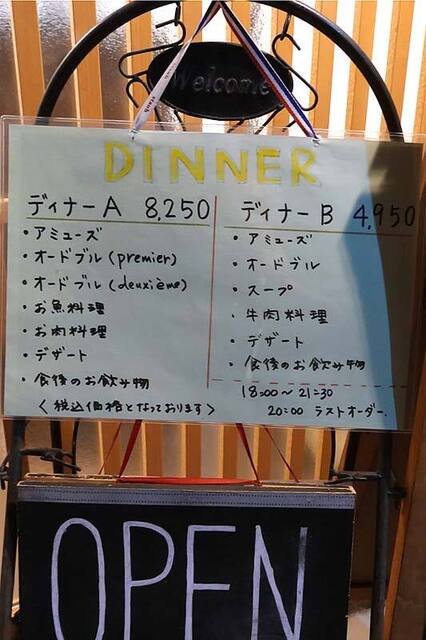 Welcome
DINNER
ディナーA 8,250
・アミューズ
・オードブル(premier)
・オードブル(deuxième)
・お魚料理
・お肉料理
・デザート
・食後のお飲み物
＜税込価格となっております＞
ディナーB 4,950
・アミューズ
・オードブル
・スープ
・牛肉料理
・デザート
・食後のお飲み物
18:00〜21:30
20:00 ラストオーダー.
OPEN